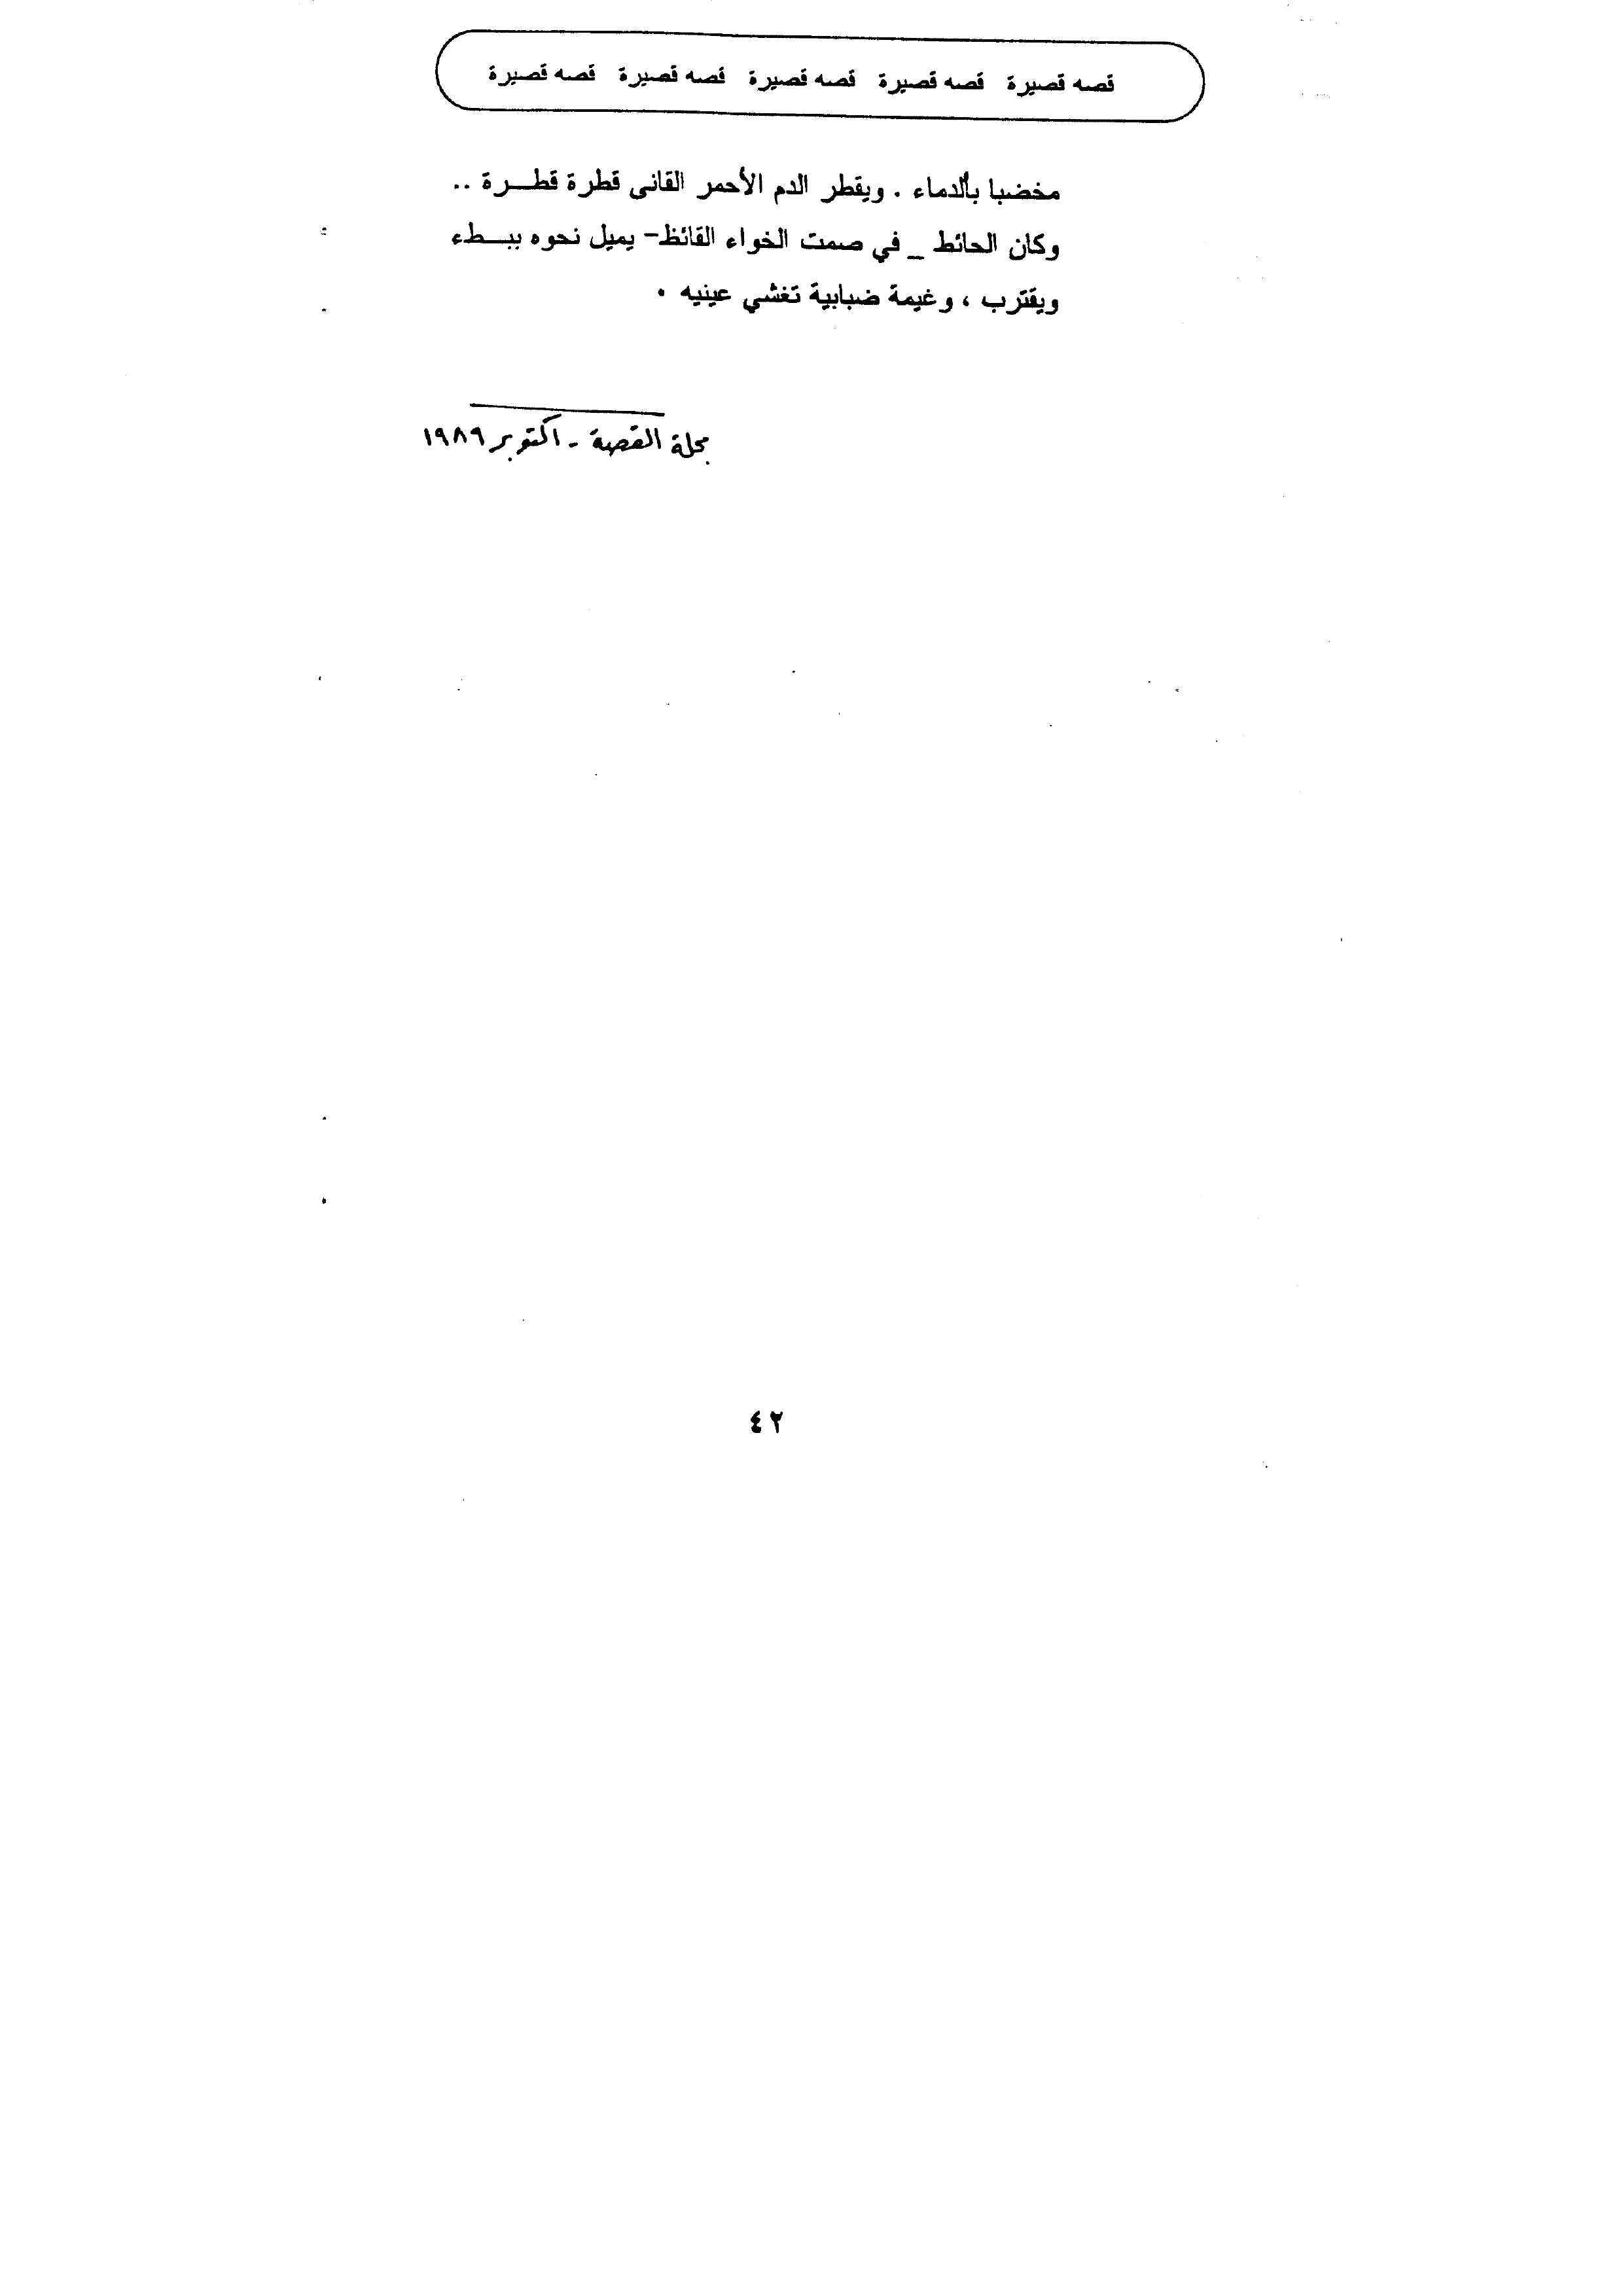 قصه قصيرة قصه قصيرة قصه قصيرة قصه قصيرة قصه قصيرة
مخضبا بألدماء . ويقطر الدم الأحمر القانى قطرة قطــرة ..
وكان الحائط _ في صمت الخواء القائظ- يميل نحوه ببــطء
ويقترب ، وغيمة ضبابية تغشي عينيه .
مجلة القصة - اكتوبر ١٩٨٩
٤٢